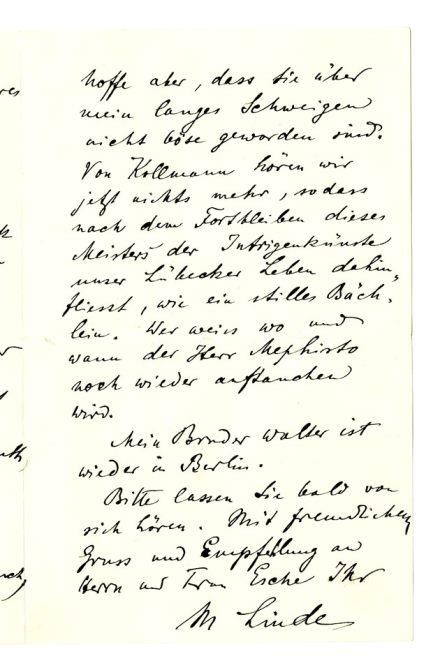 hoffe aber, dass Sie über
mein langes Schweigen
nicht böse geworden sind.
Von Kollmann hören wir
jetzt nichts mehr, sodass
nach dem Fortbleiben dieses
Meisters der Intrigenkünste
unser Lübecker Leben dahin„
fliesst, wie ein stilles Bäch„
lein. Wer weiss wo und
wann der Herr Mephisto
noch wieder auftauchen
wird.
Mein Bruder Walter ist
wieder in Berlin.
Bitte lassen Sie bald von
sich hören. Mit freundlichem
Gruss und Empfehlung an
Herrn und Frau Esche Ihr
M Linde